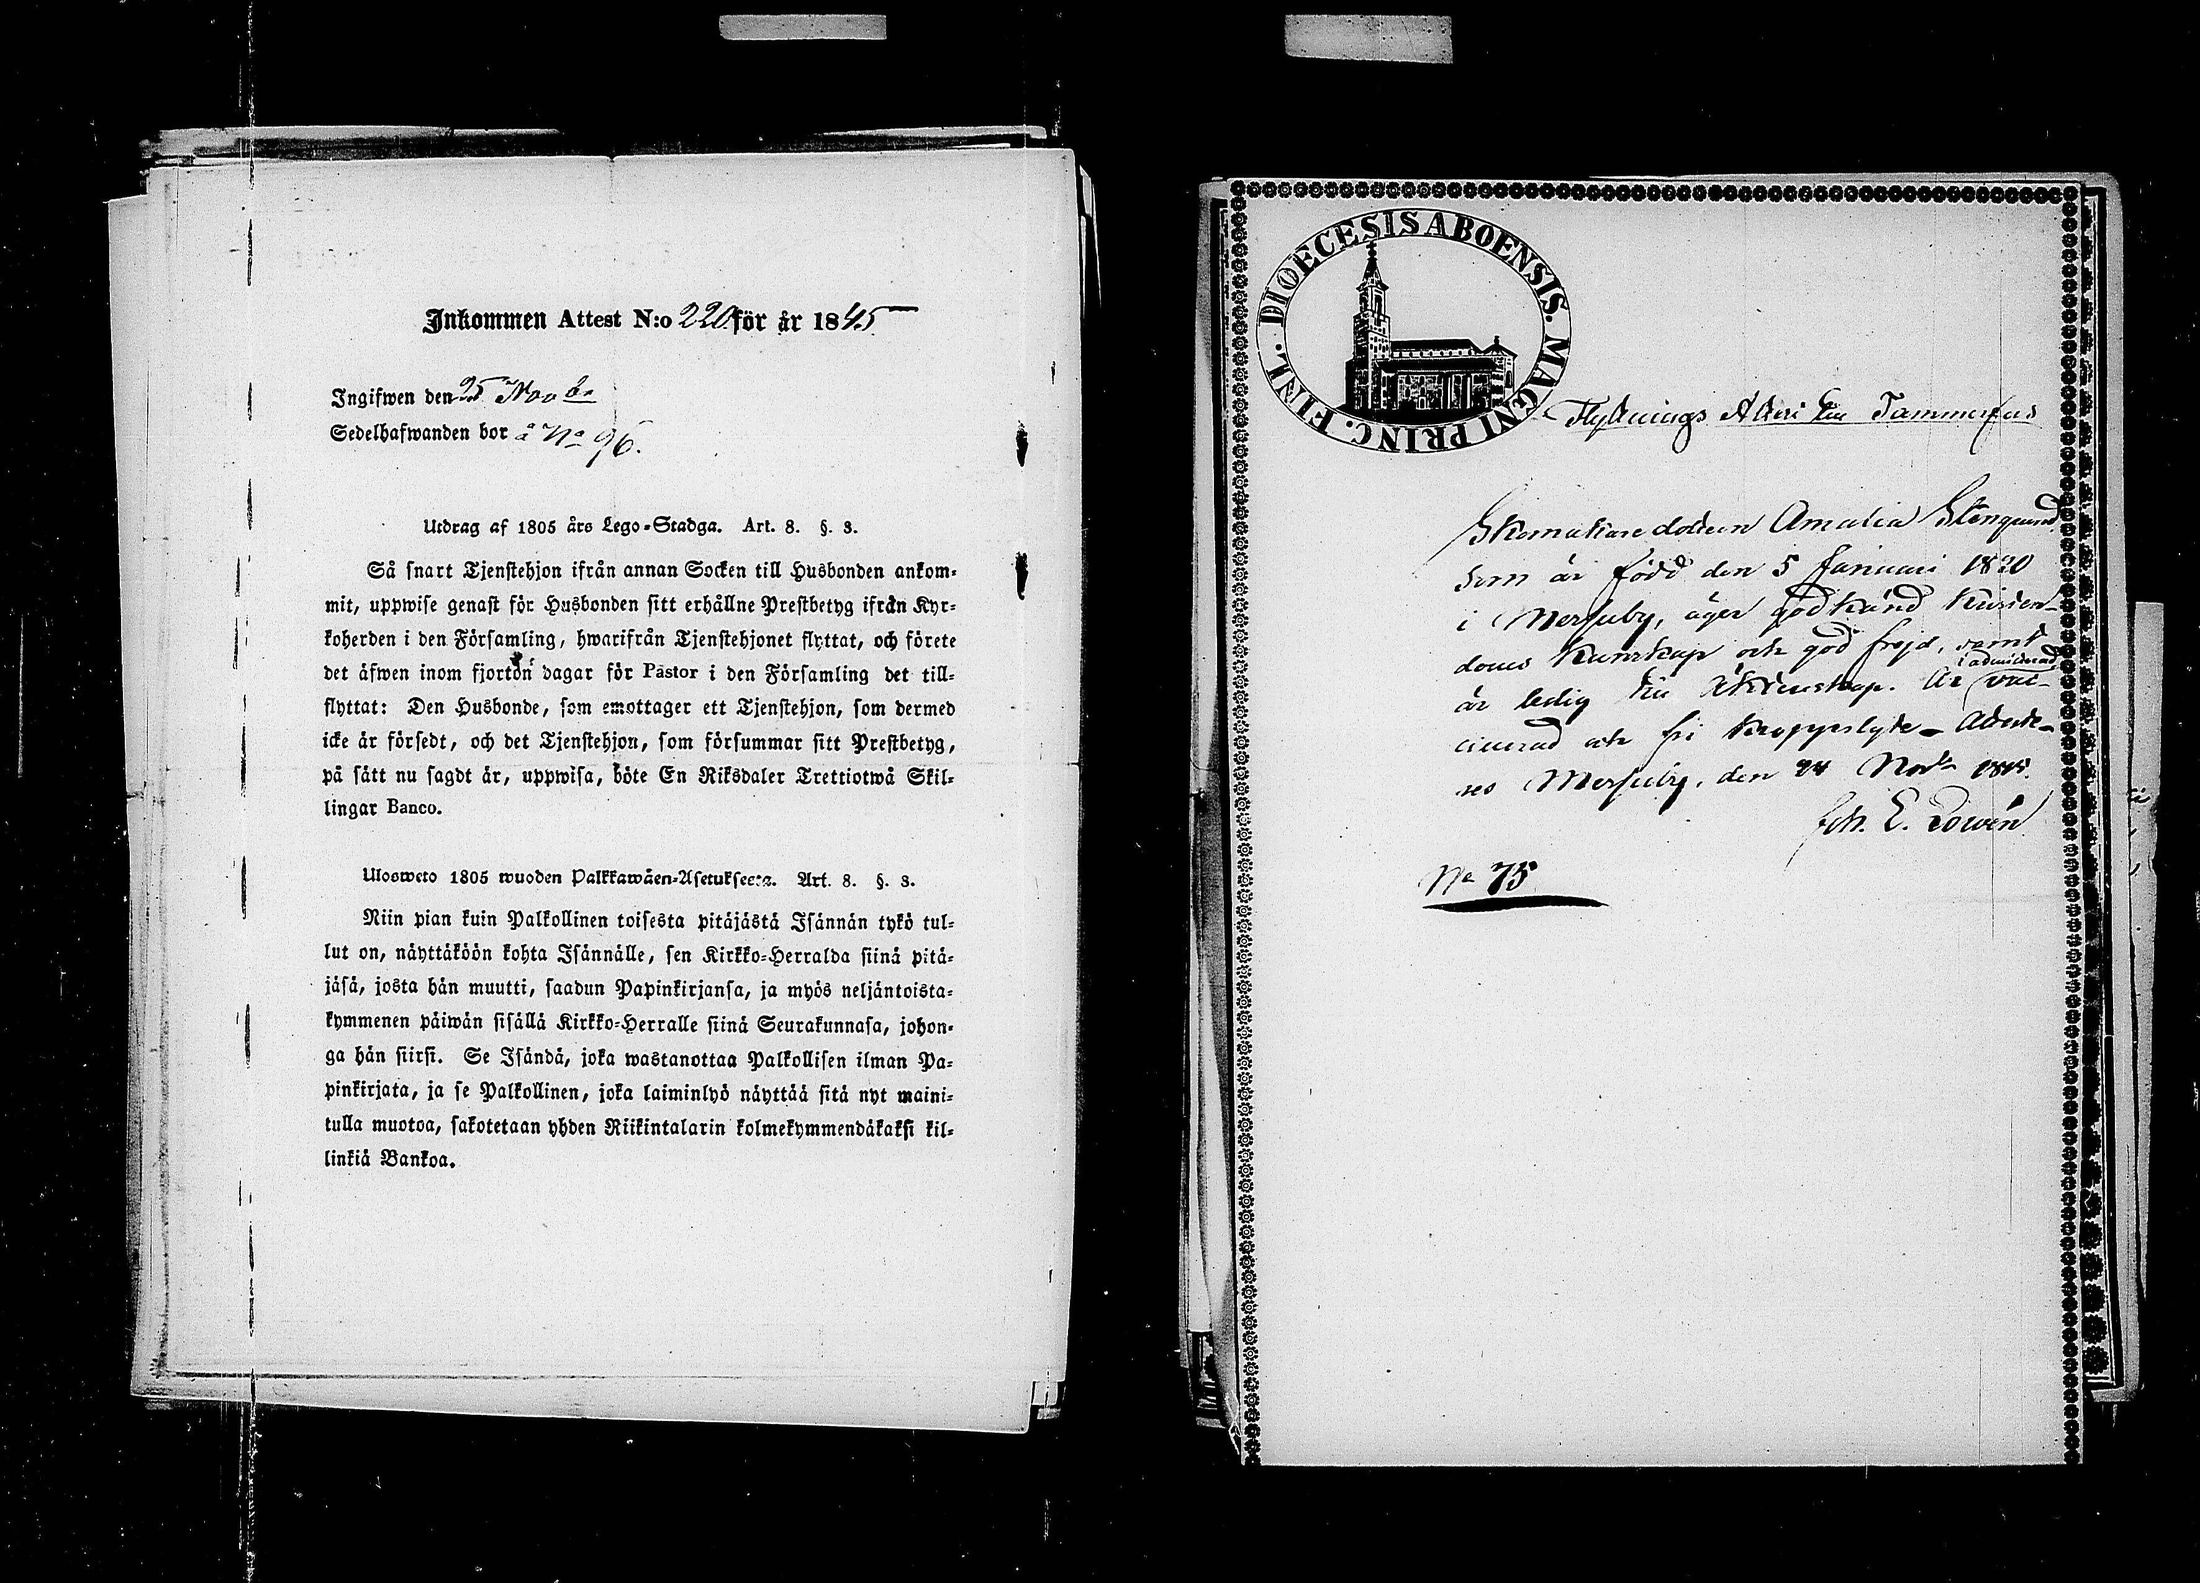 Inkommen Attest N:o 220 för år 1845
Ingifwen den 25 Novbr
Sedelhafwanden bor å No 96.
Utdrag af 1805 års Lego-Stadga. Art. 8. §. 3.
Så snart Tjenstehjon ifrån annan Socken till Husbonden ankom-
mit, uppwise genast för Husbonden sitt erhållne Prestbetyg ifrån Kyr-
koherden i den Församling, hwarifrån Tjenstehjonet flyttat, och förete
det äfwen inom fjorton dagar för Pastor i den Församling det till-
flyttat: Den Husbonde, som emottager ett Tjenstehjon, som dermed
icke är försedt, och det Tjenstehjon, som försummar sitt Prestbetyg,
på sätt nu sagdt är, uppwisa, böte En Riksdaler Trettiotwå Skil-
lingar Banco.
Ulosweto 1805 wuoden Palkkawäen-Asetuksesta. Art. 8. §. 3.
Niin pian kuin Palkollinen toisesta pitäjästä Isännän tykö tul-
lut on, näyttäköön kohta Isännälle, sen Kirkko-Herralda siinä pitä-
jäsä, josta hän muutti, saadun Papinkirjansa, ja myös neljäntoista-
kymmenen päiwän sisällä Kirkko-Herralle siinä Seurakunnasa, johon-
ga hän siirsi. Se Isändä, joka wastanottaa Palkollisen ilman Pa-
pinkirjata, ja se Palkollinen, joka laiminlyö näyttää sitä nyt maini-
tulla muotoa, sakotetaan yhden Riikintalarin kolmekymmendäkaksi kil-
linkiä Bankoa.
DIOECESIS ABOENSIS. MAGNI PRINC. FINL.
Flyttnings Attest till Tammerfors
Skomakare dottern Amalia Stenqvist
som är född den 5 Januari 1820
i Messuby, äger godkänd Kristen-
doms Kunskap och god frejd, samt
är ledig till Äktenskap. Är vac-
admitterad
cinerad och fri Kroppslyte. Attste-
ras Messuby, den 24 Novbr 1845.
Joh. E.
No 75